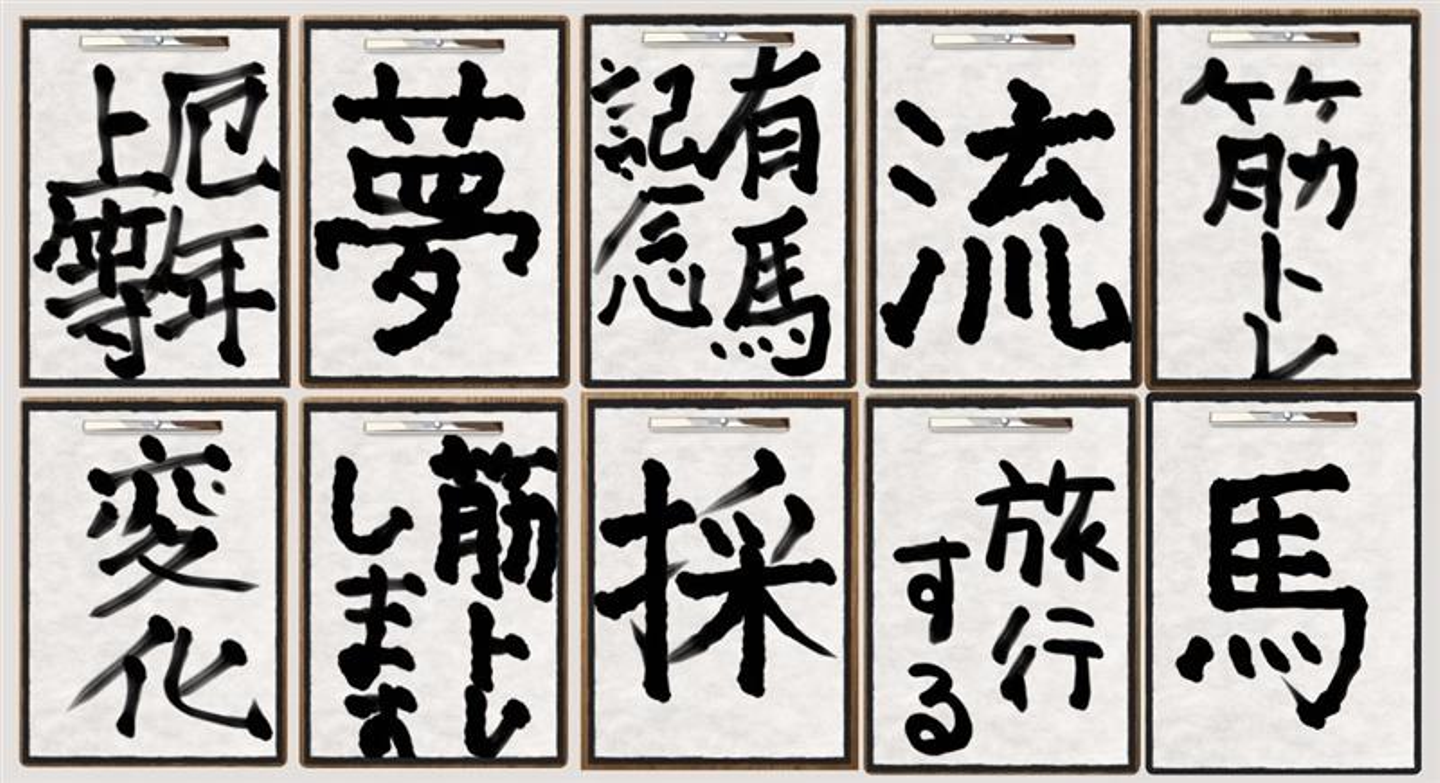 厄年
上等
夢
有馬
記念
流
筋トレ
変化
筋トレ
します
採
旅行
する
馬